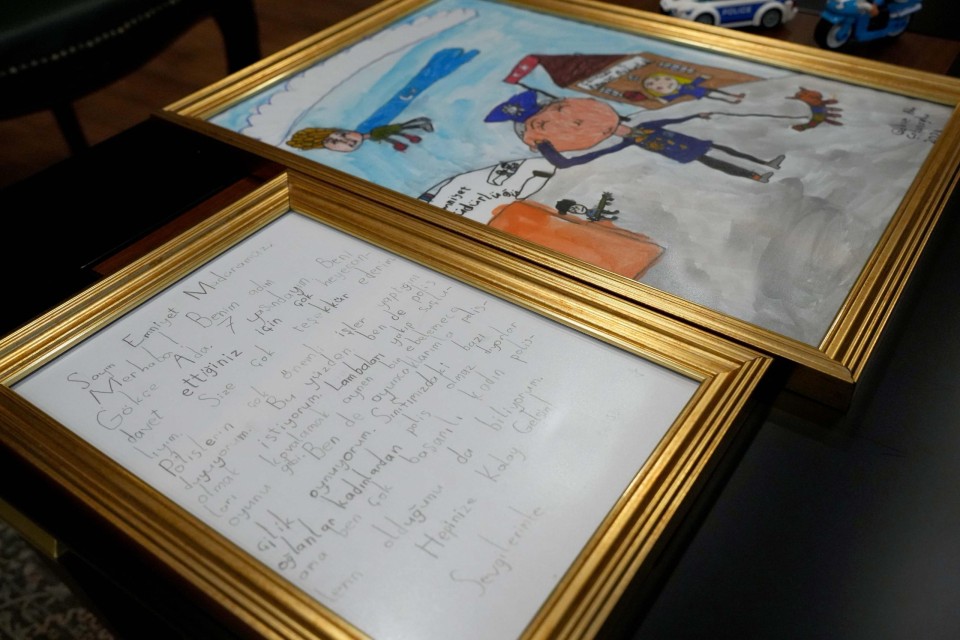 POLICE
mniyet
üdürlüğü
Sayın Emniyet Müdürümüz
Merhaba! Benim adım
Gökçe Ada. 7 yaşındayım Beni
davet ettiğiniz için çok heyecan-
lıyım Size çok teşekkür ederim
Polislerin çok önemli işler yaptığını
duyuyorum. Bu yüzden ben de polis
olmak istiyorum. Lambaları yakıp suçlu-
ları kovalamak aynen bir ebelemeceg
oyunu gibi. Ben de oyuncaklarımla polis-
çilik oynuyorum. Sınıfımızdaki bazı
oğlanlar kadınlardan polis olmaz diyorlar
ama ben çok başarılı kadın polis-
lerin olduğunu da biliyorum.
Hepinize Kolay Gelsin
Sevgilerimle